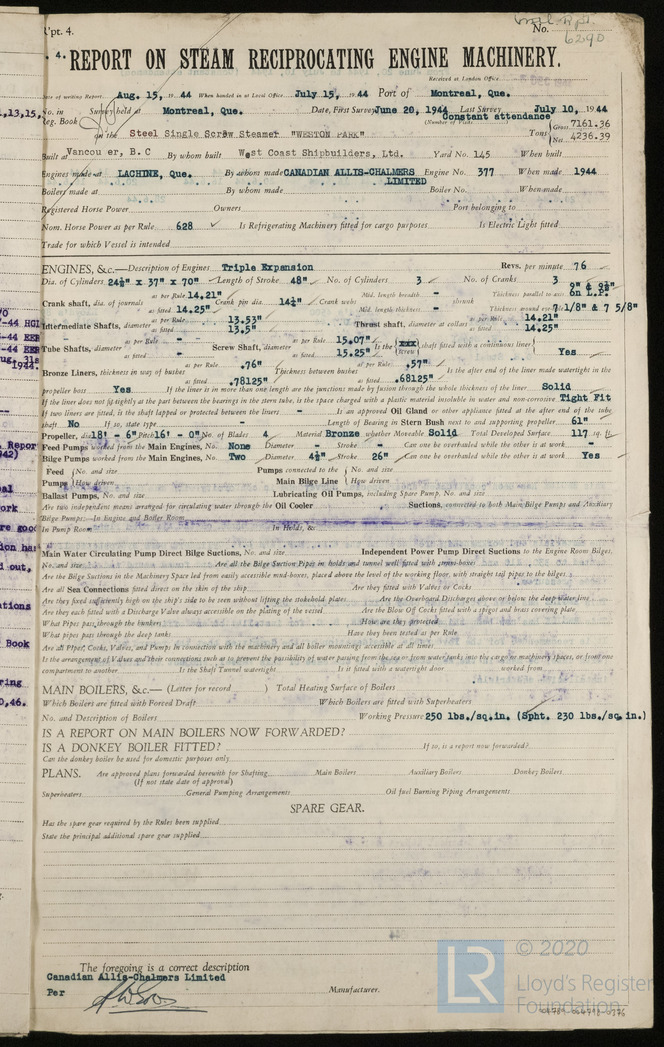 Rpt. 4.
No. 6290
4. REPORT ON STEAM RECIPROCATING ENGINE MACHINERY.
Received at London Office
Date of writing Report Aug. 15, 1944 When handed in at Local Office July 15, 1944 Port of Montreal, Que.
No. in Survey held at Montreal, Que. Date, First Survey June 20, 1944 Last Survey July 10, 1944
Reg. Book (Number of Visits Constant attendance
on the Steel Single Screw Steamer "WESTON PARK" Tons Gross 7161.36 Net 4236.39
Built at Vancouver, B.C By whom built West Coast Shipbuilders, Ltd. Yard No. 145 When built
Engines made at LACHINE, Que. By whom made CANADIAN ALLIS-CHALMERS LIMITED Engine No. 377 When made 1944
Boilers made at By whom made Boiler No. When made
Registered Horse Power Owners Port belonging to
Nom. Horse Power as per Rule 628 Is Refrigerating Machinery fitted for cargo purposes Is Electric Light fitted
Trade for which Vessel is intended
ENGINES, &c.—Description of Engines Triple Expansion Revs. per minute 76
Dia. of Cylinders 24½" x 37" x 70" Length of Stroke 48" No. of Cylinders 3 No. of Cranks 3
Crank shaft, dia. of journals as per Rule 14.21" as fitted 14.25" Crank pin dia. 14¼" Crank webs Mid. length breadth - Mid. length thickness - shrunk Thickness parallel to axis 9" & 9½" on L.P. Thickness around eye-hole 7 1/8" & 7 5/8"
Intermediate Shafts, diameter as per Rule 13.53" as fitted 13.5" Thrust shaft, diameter at collars as per Rule 14.21" as fitted 14.25"
Tube Shafts, diameter as per Rule - as fitted - Screw Shaft, diameter as per Rule 15.07" as fitted 15.25" Is the screw shaft fitted with a continuous liner Yes
Bronze Liners, thickness in way of bushes as per Rule .76" as fitted .78125" Thickness between bushes as per Rule .57" as fitted .68125" Is the after end of the liner made watertight in the
propeller boss Yes If the liner is in more than one length are the junctions made by fusion through the whole thickness of the liner Solid
If the liner does not fit tightly at the part between the bearings in the stern tube, is the space charged with a plastic material insoluble in water and non-corrosive Tight Fit
If two liners are fitted, is the shaft lapped or protected between the liners - Is an approved Oil Gland or other appliance fitted at the after end of the tube
shaft No If so, state type - Length of Bearing in Stern Bush next to and supporting propeller 61"
Propeller, dia. 18' - 6" Pitch 16' - 0" No. of Blades 4 Material Bronze whether Moveable Solid Total Developed Surface 117 sq. ft.
Feed Pumps worked from the Main Engines, No. None Diameter - Stroke - Can one be overhauled while the other is at work -
Bilge Pumps worked from the Main Engines, No. Two Diameter 4½" Stroke 26" Can one be overhauled while the other is at work Yes
Feed Pumps No. and size How driven Pumps connected to the Main Bilge Line No. and size How driven
Ballast Pumps, No. and size Lubricating Oil Pumps, including Spare Pump, No. and size
Are two independent means arranged for circulating water through the Oil Cooler Suctions, connected to both Main Bilge Pumps and Auxiliary
Bilge Pumps:—In Engine and Boiler Room
In Pump Room In Holds, &c.
Main Water Circulating Pump Direct Bilge Suctions, No. and size Independent Power Pump Direct Suctions to the Engine Room Bilges,
No. and size Are all the Bilge Suction Pipes in holds and tunnel well fitted with strum-boxes
Are the Bilge Suctions in the Machinery Space led from easily accessible mud-boxes, placed above the level of the working floor, with straight tail pipes to the bilges
Are all Sea Connections fitted direct on the skin of the ship Are they fitted with Valves or Cocks
Are they fixed sufficiently high on the ship's side to be seen without lifting the stokehold plates Are the Overboard Discharges above or below the deep water line
Are they each fitted with a Discharge Valve always accessible on the plating of the vessel Are the Blow Off Cocks fitted with a spigot and brass covering plate
What Pipes pass through the bunkers How are they protected
What pipes pass through the deep tanks Have they been tested as per Rule
Are all Pipes, Cocks, Valves, and Pumps in connection with the machinery and all boiler mountings accessible at all times
Is the arrangement of Valves and their connections such as to prevent the possibility of water passing from the sea or from water tanks into the cargo or machinery spaces, or from one
compartment to another Is the Shaft Tunnel watertight Is it fitted with a watertight door worked from
MAIN BOILERS, &c.— (Letter for record ) Total Heating Surface of Boilers
Which Boilers are fitted with Forced Draft Which Boilers are fitted with Superheaters
No. and Description of Boilers Working Pressure 250 lbs./sq.in. (Spht. 230 lbs./sq.in.)
IS A REPORT ON MAIN BOILERS NOW FORWARDED?
IS A DONKEY BOILER FITTED? If so, is a report now forwarded?
Can the donkey boiler be used for domestic purposes only
PLANS. Are approved plans forwarded herewith for Shafting Main Boilers Auxiliary Boilers Donkey Boilers
(If not state date of approval)
Superheaters General Pumping Arrangements Oil fuel Burning Piping Arrangements
SPARE GEAR.
Has the spare gear required by the Rules been supplied
State the principal additional spare gear supplied
The foregoing is a correct description
Canadian Allis-Chalmers Limited
Per Manufacturer.
LR © 2020
Lloyd's Register
Foundation